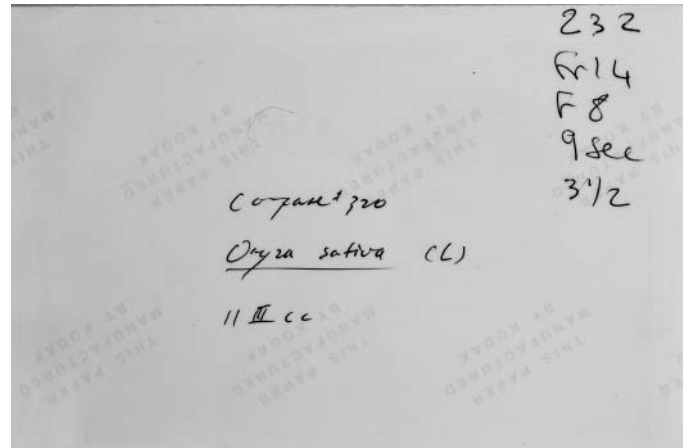 232
Fr14
F 8
9 sec
3 1/2
Compare # 320
Oryza sativa (L)
11 III cc
THIS PAPER
MANUFACTURED
BY KODAK